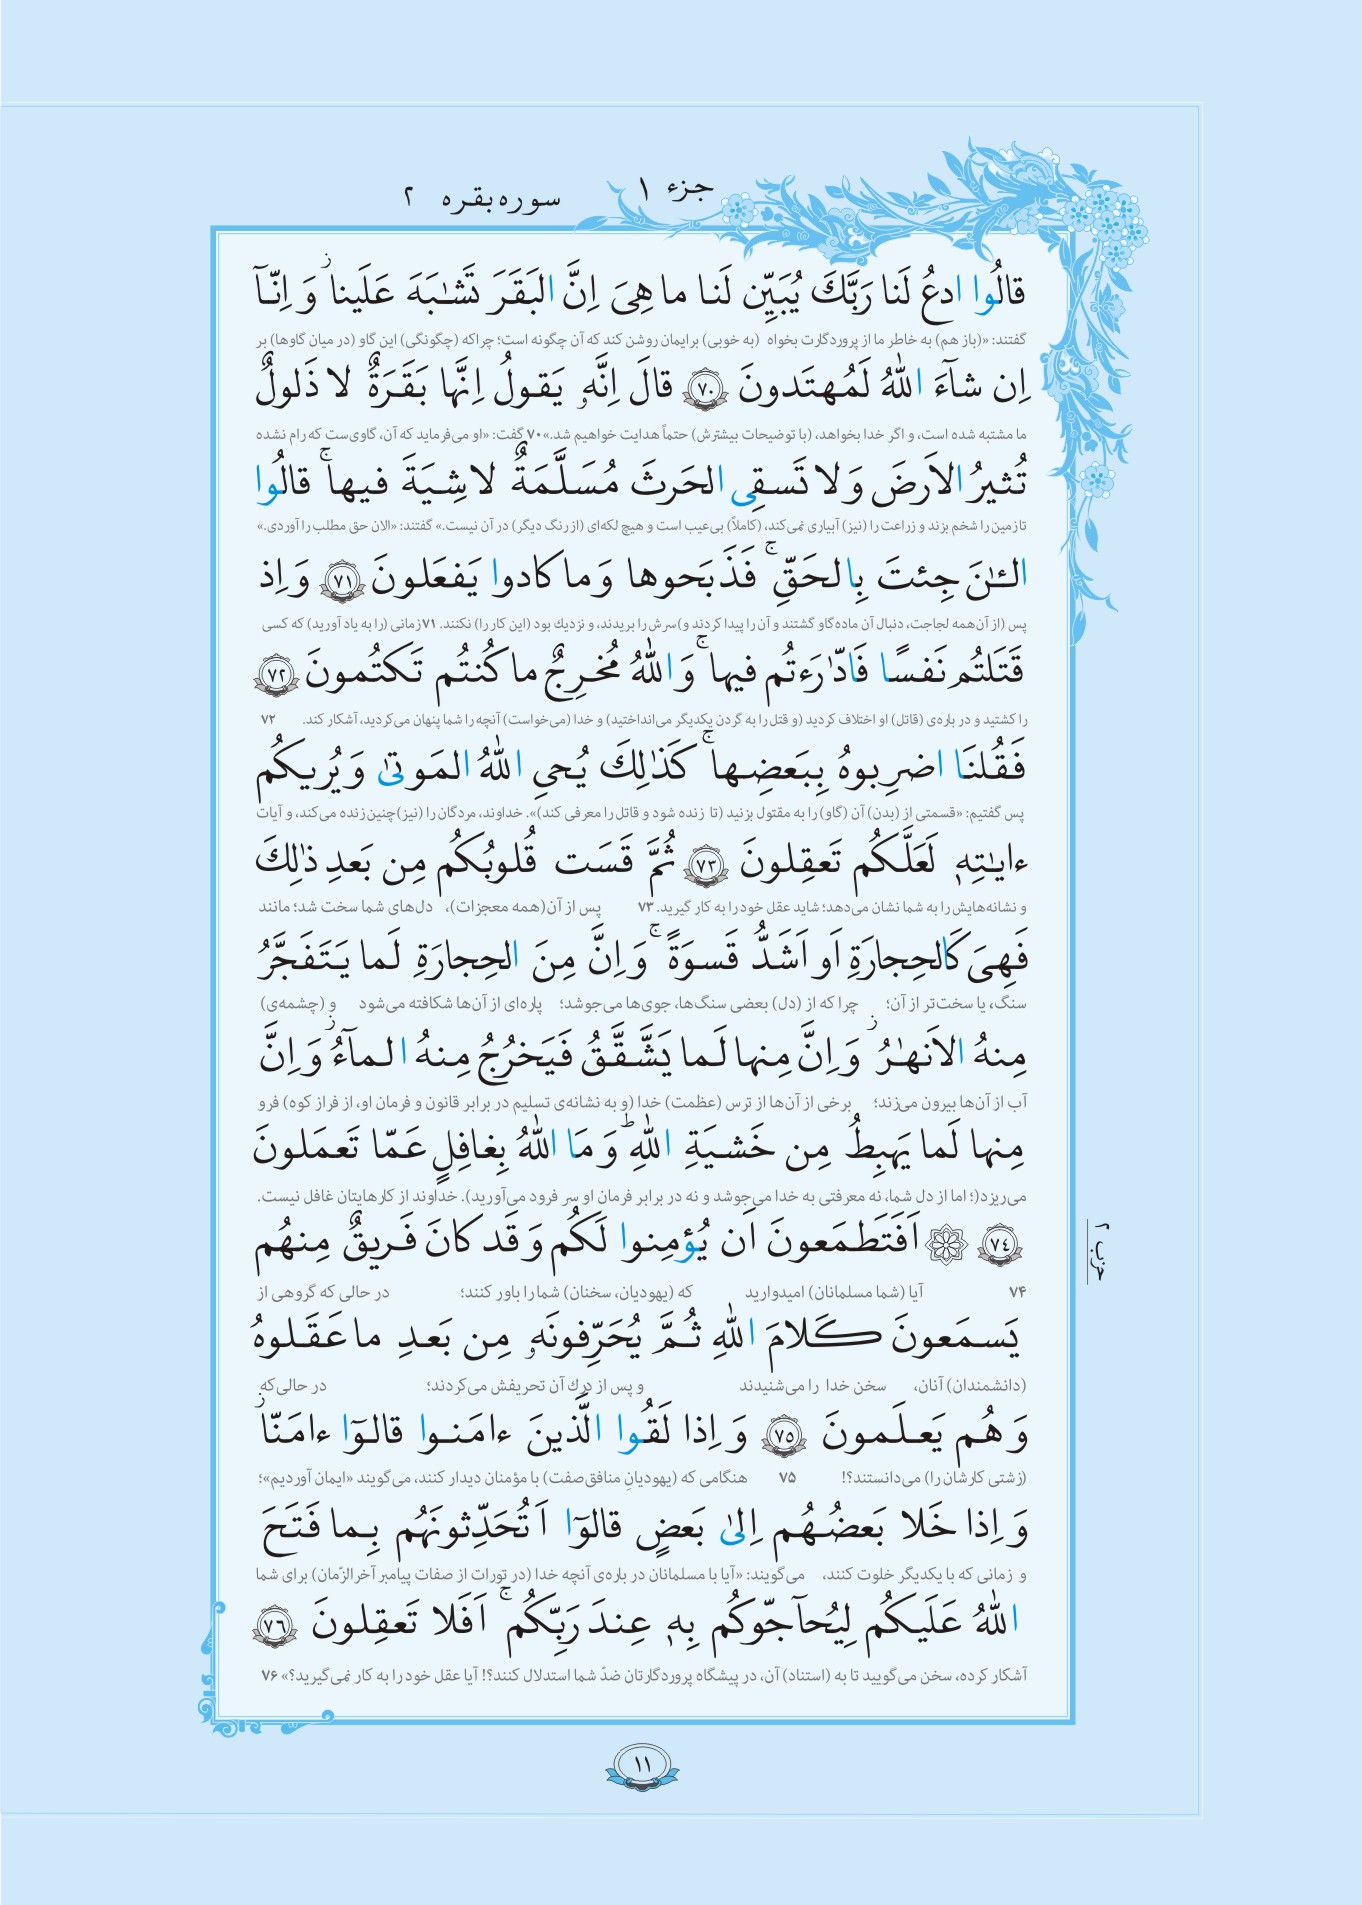 جزء ۱
سوره بقره ۲
قالُوا ادعُ لَنا رَبَّكَ يُبَيِّن لَنا ما هِىَ اِنَّ البَقَرَ تَشٰبَهَ عَلَينا ز وَ اِنّآ
گفتند: «(باز هم) به خاطر ما از پروردگارت بخواه (به خوبی) برایمان روشن کند که آن چگونه است؛ چراکه (چگونگی) این گاو (در میان گاوها) بر
اِن شآءَ اللّٰهُ لَمُهتَدونَ ﴿٧٠﴾ قالَ اِنَّهۥ يَقولُ اِنَّها بَقَرَةٌ لا ذَلولٌ
ما مشتبه شده است، و اگر خدا بخواهد، (با توضیحات بیشترش) حتماً هدایت خواهیم شد.» ۷۰ گفت: «او می‌فرماید که آن، گاوی‌ست که رام نشده
تُثيرُ الاَرضَ وَ لا تَسقِى الحَرثَ مُسَلَّمَةٌ لا شِيَةَ فيها ۚ قالُوا
تا زمین را شخم بزند و زراعت را (نیز) آبیاری نمی‌کند، (کاملاً) بی‌عیب است و هیچ لکه‌ای (از رنگ دیگر) در آن نیست.» گفتند: «الان حق مطلب را آوردی.»
الـٔـٰنَ جِئتَ بِالحَقِّ ۚ فَذَبَحوها وَ ما كادوا يَفعَلونَ ﴿٧١﴾ وَ اِذ
پس (از آن‌همه لجاجت، دنبال آن ماده‌گاو گشتند و آن را پیدا کردند و) سرش را بریدند، و نزدیک بود (این کار را) نکنند. ۷۱ زمانی (را به یاد آورید) که کسی
قَتَلتُم نَفسًا فَادّٰرَءتُم فيها ۚ وَ اللّٰهُ مُخرِجٌ ما كُنتُم تَكتُمونَ ﴿٧٢﴾
را کشتید و در باره‌ی (قاتل) او اختلاف کردید (و قتل را به گردن یکدیگر می‌انداختید) و خدا (می‌خواست) آنچه را شما پنهان می‌کردید، آشکار کند. ۷۲
فَقُلنَا اضرِبوهُ بِبَعضِها ۚ كَذٰلِكَ يُحيِ اللّٰهُ المَوتىٰ وَ يُريكُم
پس گفتیم: «قسمتی از (بدن) آن (گاو) را به مقتول بزنید (تا زنده شود و قاتل را معرفی کند)». خداوند، مردگان را (نیز) چنین زنده می‌کند، و آیات
ءايٰتِهٖ لَعَلَّكُم تَعقِلونَ ﴿٧٣﴾ ثُمَّ قَسَت قُلوبُكُم مِن بَعدِ ذٰلِكَ
و نشانه‌هایش را به شما نشان می‌دهد؛ شاید عقل خود را به کار گیرید. ۷۳ پس از آن (همه معجزات)، دل‌های شما سخت شد؛ مانند
فَهِىَ كَالحِجارَةِ اَو اَشَدُّ قَسوَةً ۚ وَ اِنَّ مِنَ الحِجارَةِ لَما يَتَفَجَّرُ
سنگ، یا سخت‌تر از آن؛ چرا که از (دل) بعضی سنگ‌ها، جوی‌ها می‌جوشد؛ پاره‌ای از آن‌ها شکافته می‌شود و (چشمه‌ی)
مِنهُ الاَنهٰرُ ز وَ اِنَّ مِنها لَما يَشَّقَّقُ فَيَخرُجُ مِنهُ المآءُ ز وَ اِنَّ
آب از آن‌ها بیرون می‌زند؛ برخی از آن‌ها از ترس (عظمت) خدا (و به نشانه‌ی تسلیم در برابر قانون و فرمان او، از فراز کوه) فرو
مِنها لَما يَهبِطُ مِن خَشيَةِ اللّٰهِ ط وَ مَا اللّٰهُ بِغافِلٍ عَمّا تَعمَلونَ
می‌ریزد(؛ اما از دل شما، نه معرفتی به خدا می‌جوشد و نه در برابر فرمان او سر فرود می‌آورید). خداوند از کارهایتان غافل نیست.
﴿٧٤﴾ ۞ اَفَتَطمَعونَ اَن يُؤمِنوا لَكُم وَ قَد كانَ فَريقٌ مِنهُم
۷۴ آیا (شما مسلمانان) امیدوارید که (یهودیان، سخنان) شما را باور کنند؛ در حالی که گروهی از
حزب ۲
يَسمَعونَ كَلامَ اللّٰهِ ثُمَّ يُحَرِّفونَهۥ مِن بَعدِ ما عَقَلوهُ
(دانشمندان) آنان، سخن خدا را می‌شنیدند و پس از درک آن تحریفش می‌کردند؛ در حالی‌که
وَ هُم يَعلَمونَ ﴿٧٥﴾ وَ اِذا لَقُوا الَّذينَ ءامَنوا قالوٓا ءامَنّا ز
(زشتی کارشان را) می‌دانستند؟! ۷۵ هنگامی که (یهودیانِ منافق‌صفت) با مؤمنان دیدار کنند، می‌گویند «ایمان آوردیم»؛
وَ اِذا خَلا بَعضُهُم اِلىٰ بَعضٍ قالوٓا اَتُحَدِّثونَهُم بِما فَتَحَ
و زمانی که با یکدیگر خلوت کنند، می‌گویند: «آیا با مسلمانان در باره‌ی آنچه خدا (در تورات از صفات پیامبر آخرالزّمان) برای شما
اللّٰهُ عَلَيكُم لِيُحآجّوكُم بِهٖ عِندَ رَبِّكُم ۚ اَفَلا تَعقِلونَ ﴿٧٦﴾
آشکار کرده، سخن می‌گویید تا به (استناد) آن، در پیشگاه پروردگارتان ضدّ شما استدلال کنند؟! آیا عقل خود را به کار نمی‌گیرید؟» ۷۶
۱۱